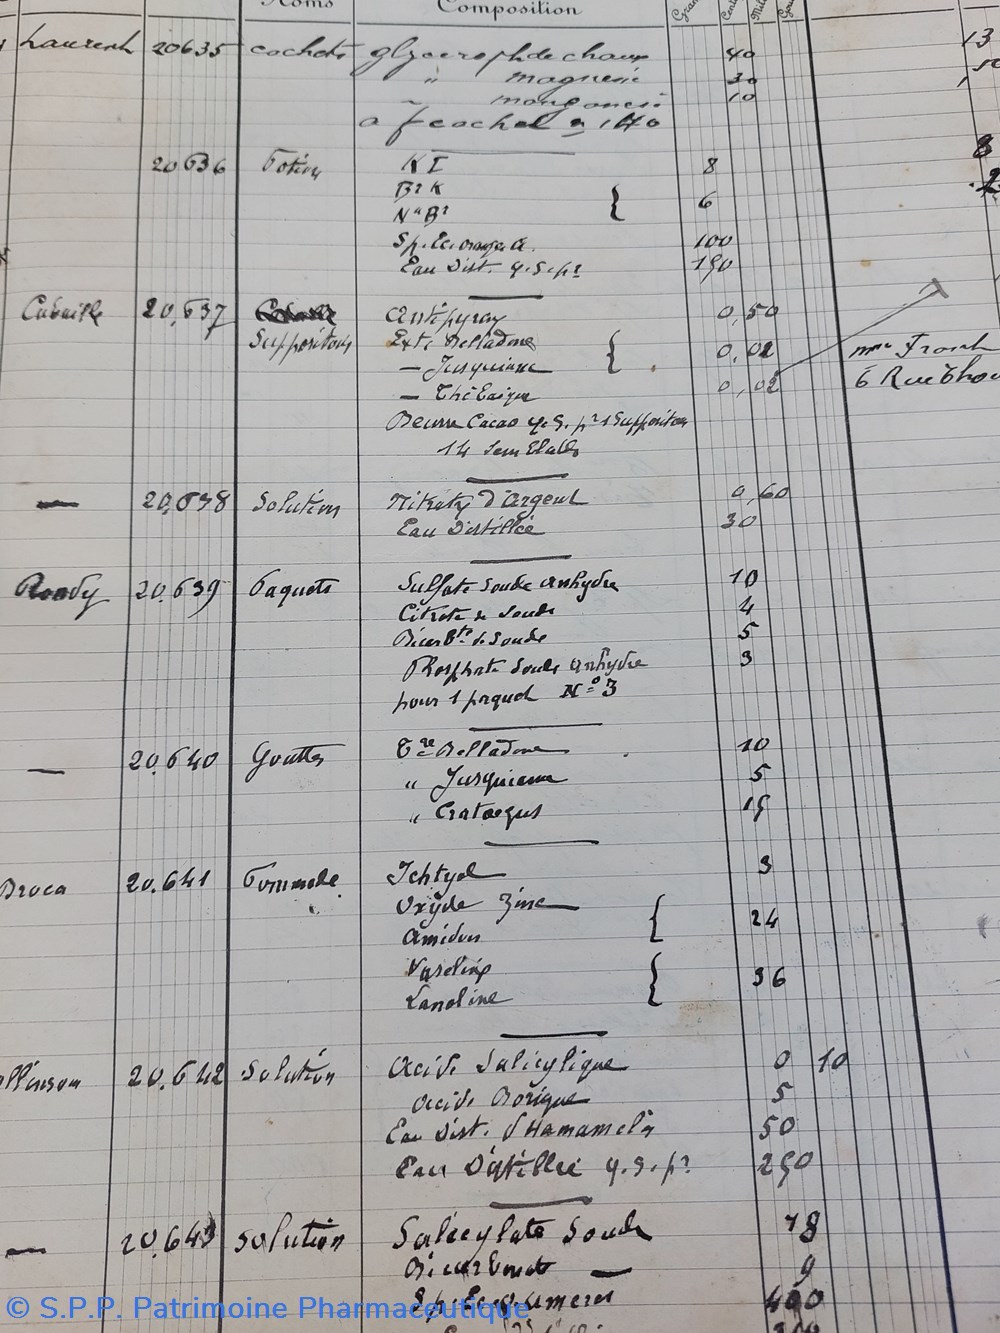 Noms Composition
Laurent 20635 cachets glycerophde chaux 40
" magnesie 30
" manganese 10
a f cachet n= 140 13
20,636 Potion KI 8
Br K
Na Br { 6
Sp. Ec orange a. 100
Eau Dist. q.s.pr 150
20,637 Antipyrin 0,50
Suppositoires Ext. Belladone
— Jusquiame { 0,02
— Thébaique 0,02
Beurre Cacao q.s. pr 1 Suppositoire
6 Rue
— 20,638 Solution Nitrate d'Argent 0,60
Eau Distillée 30
20,639 Paquets Sulfate Soude anhydre 10
Citrate de Soude 4
Bicarbte de Soude 5
Phosphate Soude anhydre 3
pour 1 paquet No 3
— 20,640 Gouttes Tre Belladone 10
" Jusquiame 5
" Crataegus 15
Broca 20,641 Pommade Ichtyol 3
Oxyde Zinc
Amidon { 24
Vaseline
Lanoline { 36
20,642 Solution Acide Salicylique 0 10
Acide Borique 5
Eau Dist. d'Hamamelis 50
Eau Distillée q.s.pr 250
— 20,643 Solution Salicylate Soude 18
Bicarbonate — 9
Sp. Ec 400
© S.P.P. Patrimoine Pharmaceutique